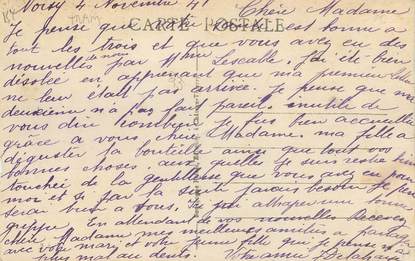 Noisy 4 Novembre 41 Chère Madame
CARTE POSTALE
Je pense que est bonne a
tout les trois et que vous avez eu des
nouvelles par Mme Lescable. J'ai été bien
désolée en apprenant que ma première
ne leur était pas arrivée. Je pense que ma
deuxième n'a pas fait pareil. inutile de
vous dire combien je fus bien accueillie
grâce a vous Madame. ma fille a
déguster la bouteille ainsi que tout vos
bonnes choses aux quelles je suis restée
touchée de la gentillesse que vous avez eu pour
moi et si par la suite j'avais besoin je
serai bien a vous. J'ai attraper une bonne
grippe. En attendant de vos nouvelles Recevez
chère Madame mes meilleures amitiés a partager
avec votre mari et votre jeune fille qui je pense n'a
plus mal au dents.